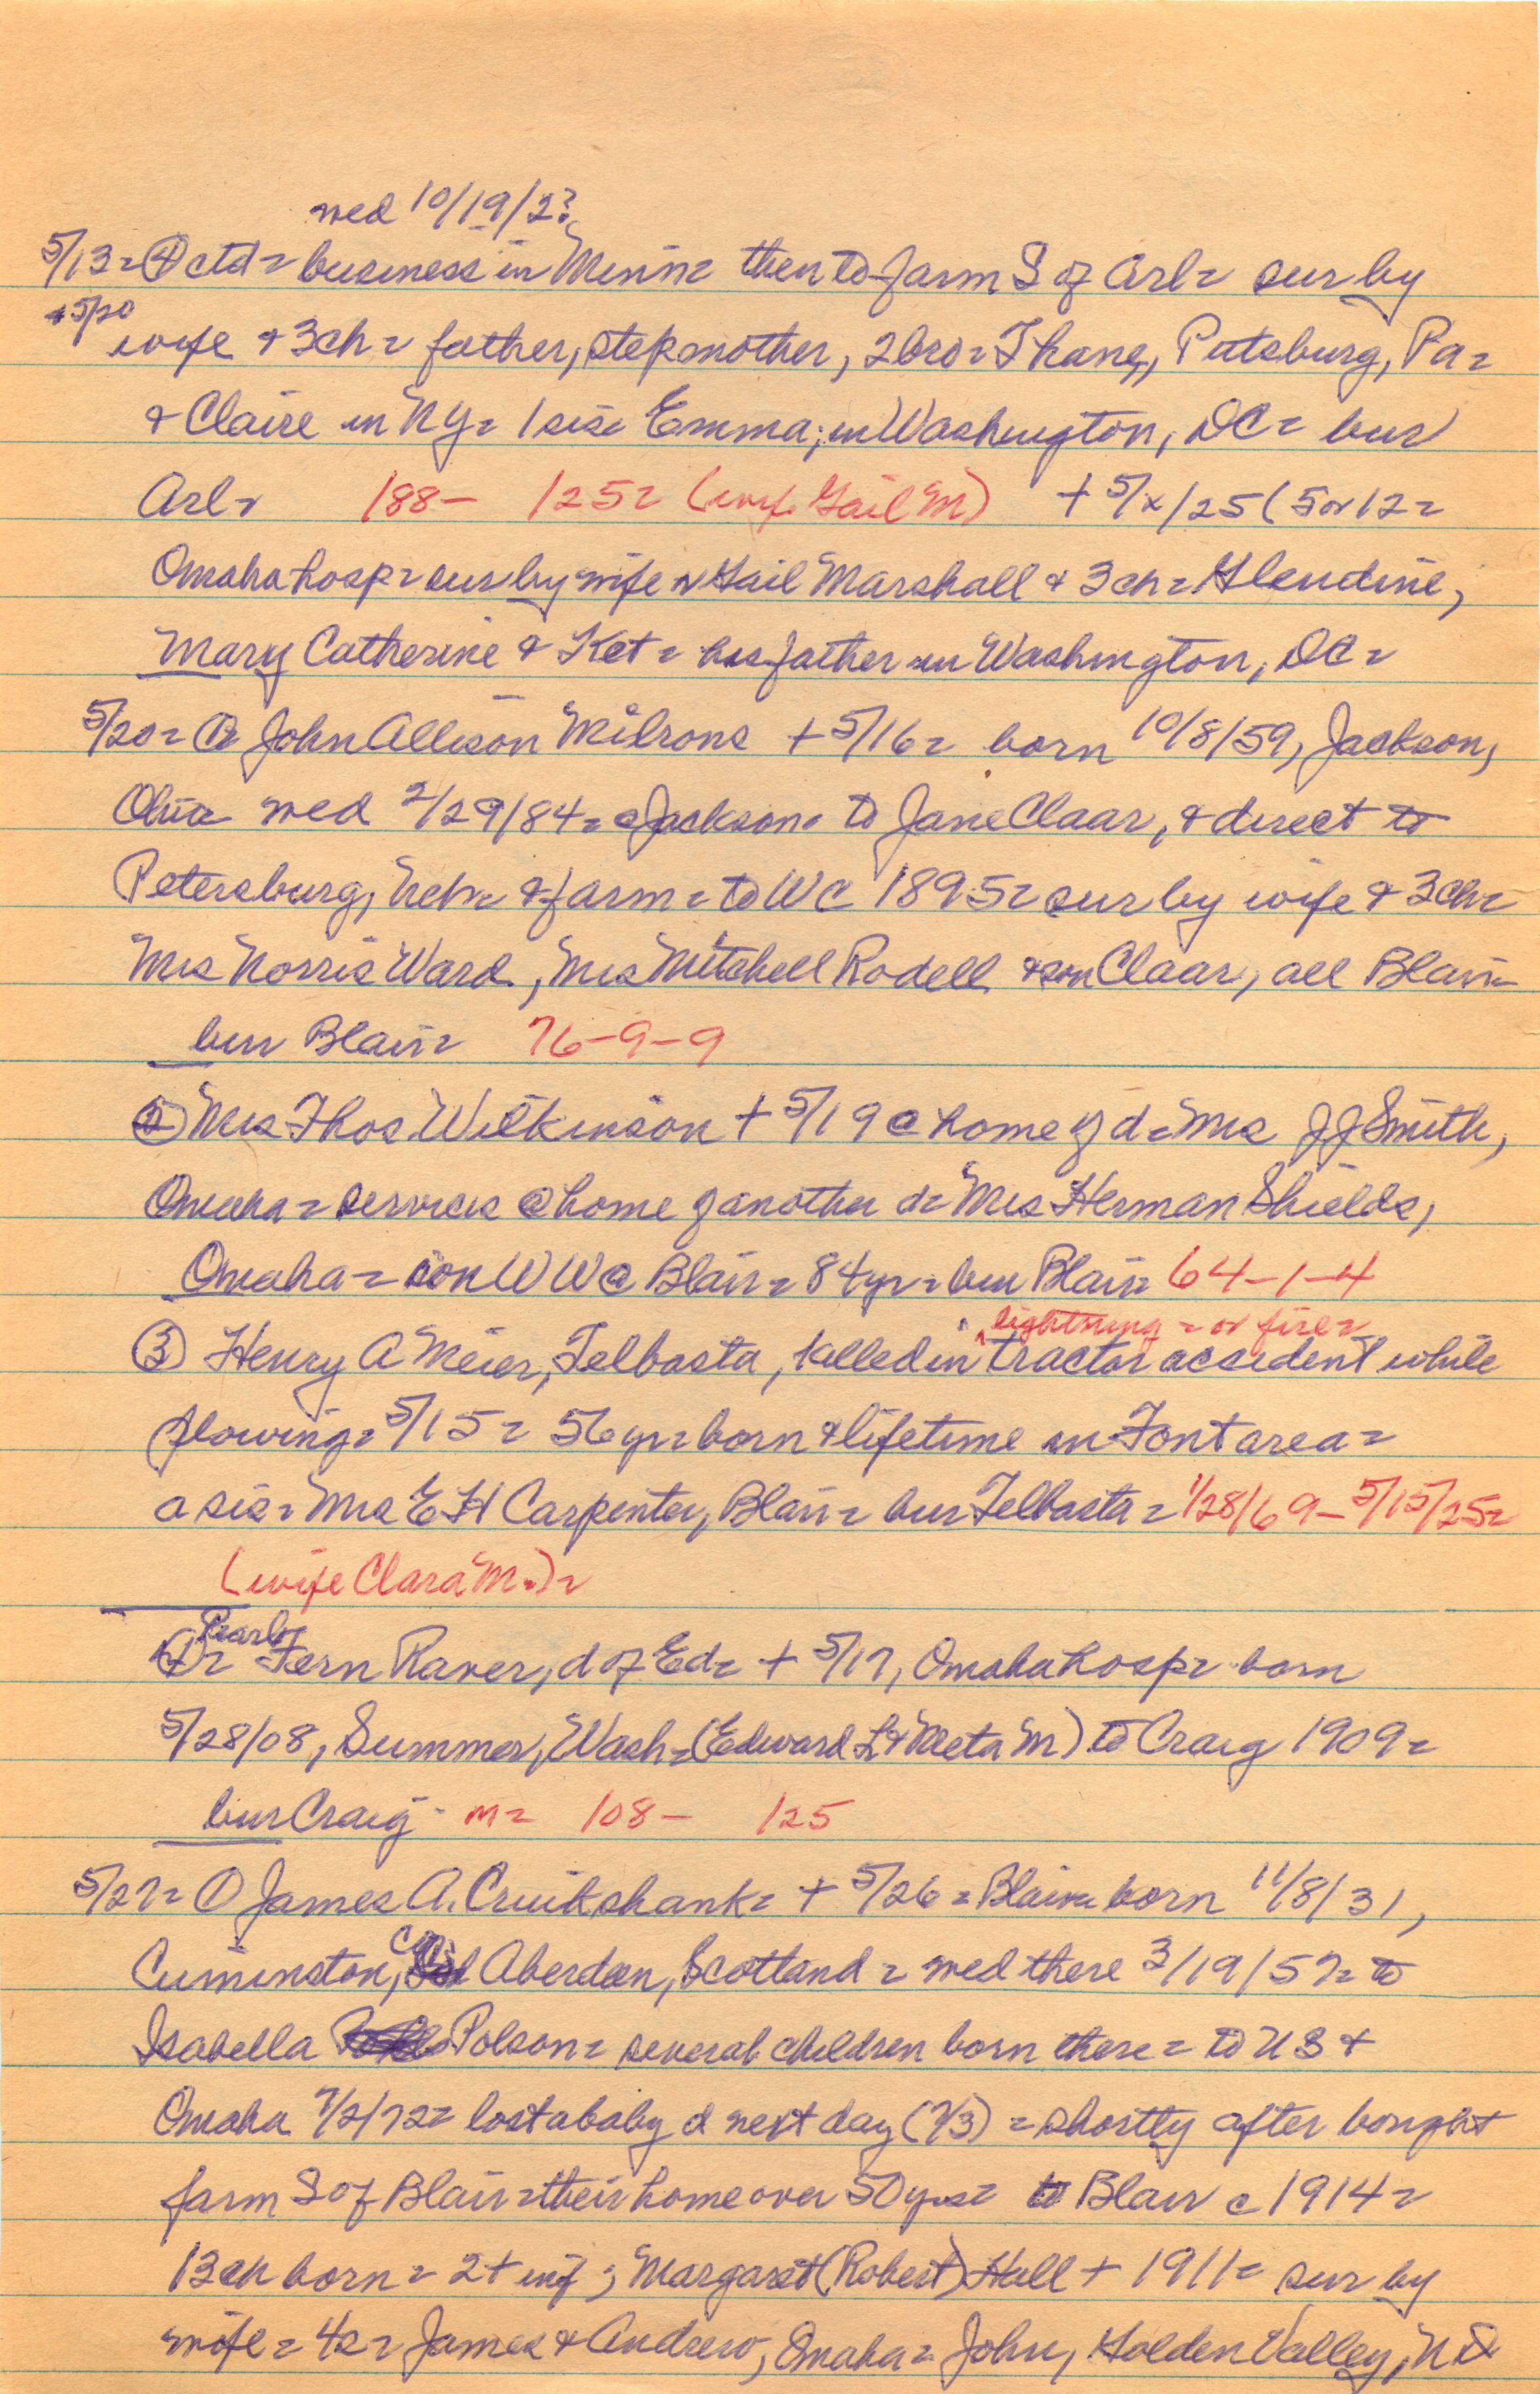 wed 10/19/2?
5/13= ④ ctd= business in Minn= then to farm S of Arl= sur by
+5/20
wife + 3ch= father, stepmother, 2bro= Thane, Pittsburg, Pa=
+ Claire in NY= 1 sis= Emma, in Washington, DC= bur
Arl= 188- 125= (wife Gail M) + 5/x/25 (5 or 12=
Omaha hosp= sur by wife Gail Marshall + 3 ch= Glendine,
Mary Catherine + Ket= his father in Washington, DC=
5/20= John Allison Milrons + 5/16= born 10/8/59, Jackson,
Ohio wed 2/29/84= @ Jackson= to Jane Claar, + direct to
Petersburg, Neb= + farm= to WC 1895= sur by wife + 3ch=
Mrs Norris Ward, Mrs Mitchell Rodell + son Claar, all Blair=
bur Blair= 76-9-9
② Mrs Thos Wilkinson + 5/19 @ home of d= Mrs JJ Smith,
Omaha= services @ home of another d= Mrs Herman Shields,
Omaha= son WW @ Blair= 84yr= bur Blair= 64-1-4
lightning= or fire=
③ Henry A Meier, Telbasta, killed in tractor accident while
plowing= 5/15= 56yr= born + lifetime in Font area=
a sis= Mrs EH Carpenter, Blair= bur Telbasta= 1/28/69- 5/15/25=
(wife Clara M=)=
Pearl
④= Fern Raver, d of Ed= + 5/17, Omaha hosp= born
5/28/08, Summer, Wash= (Edward L + Meta M) to Craig 1909=
bur Craig= m= 108- 125
5/27= ① James A. Cruikshank= + 5/26= Blair= born 11/8/31,
Cuminston, Aberdeen, Scotland= wed there 3/19/57= to
Isabella Polson= several children born there= to US +
Omaha 7/2/72= lost a baby d next day (7/3)= shortly after bought
farm S of Blair= their home over 50yrs= to Blair c 1914=
13ch born= 2+ inf; Margaret (Robert) Hall + 1911= sur by
wife= 4s= James + Andrew, Omaha= John, Golden Valley, ND